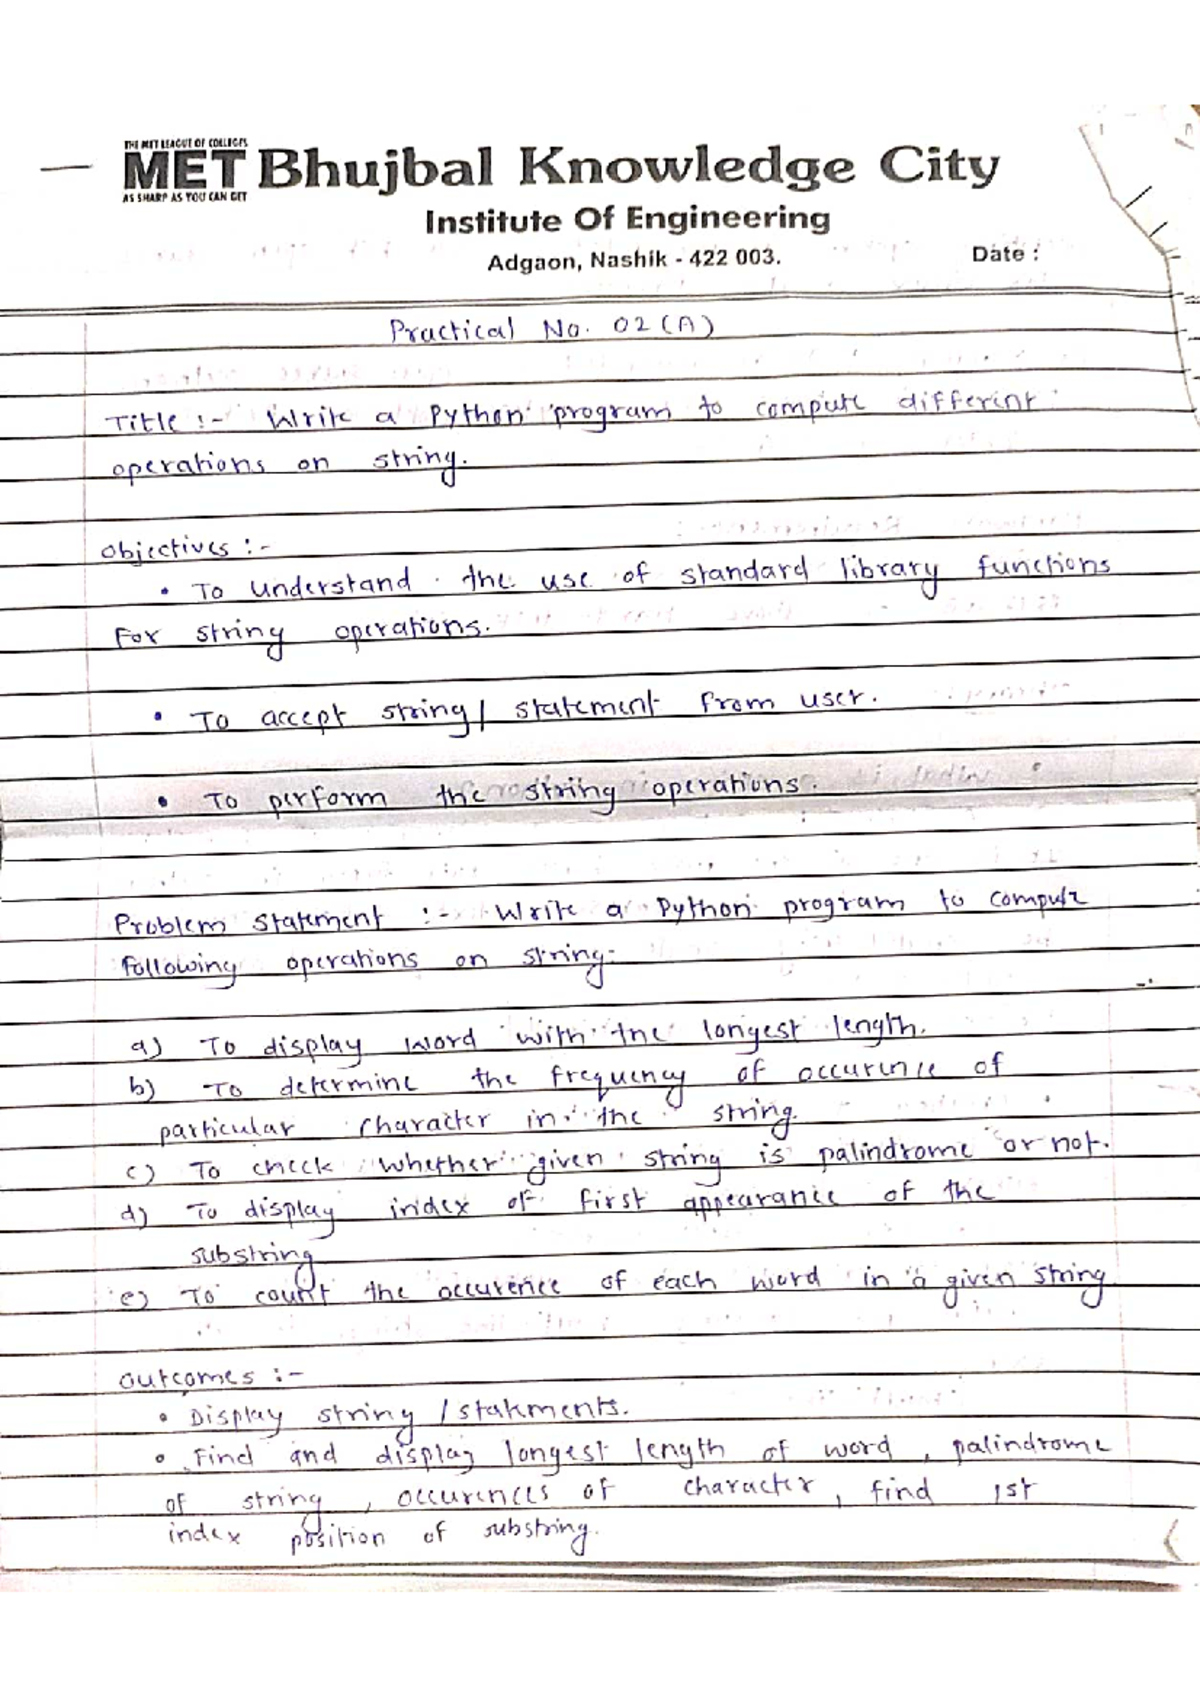 THE MET LEAGUE OF COLLEGES
MET Bhujbal Knowledge City
AS SHARP AS YOU CAN GET
Institute Of Engineering
Adgaon, Nashik - 422 003.
Date :
Practical No. 02 (A)
Title :- Write a Python program to compute different
operations on string.
Objectives :-
• To understand the use of standard library functions
For string operations.
• To accept string / statement from user.
• To perform the string operations.
Problem statement :- Write a Python program to compute
following operations on string:-
a) To display word with the longest length.
b) To determine the frequency of occurence of
particular character in the string.
c) To check whether given string is palindrome or not.
d) To display index of first appearance of the
substring
e) To count the occurence of each word in a given string
outcomes :-
• Display string / statements.
• Find and display longest length of word, palindrome
of string, occurences of character, find 1st
index position of substring.